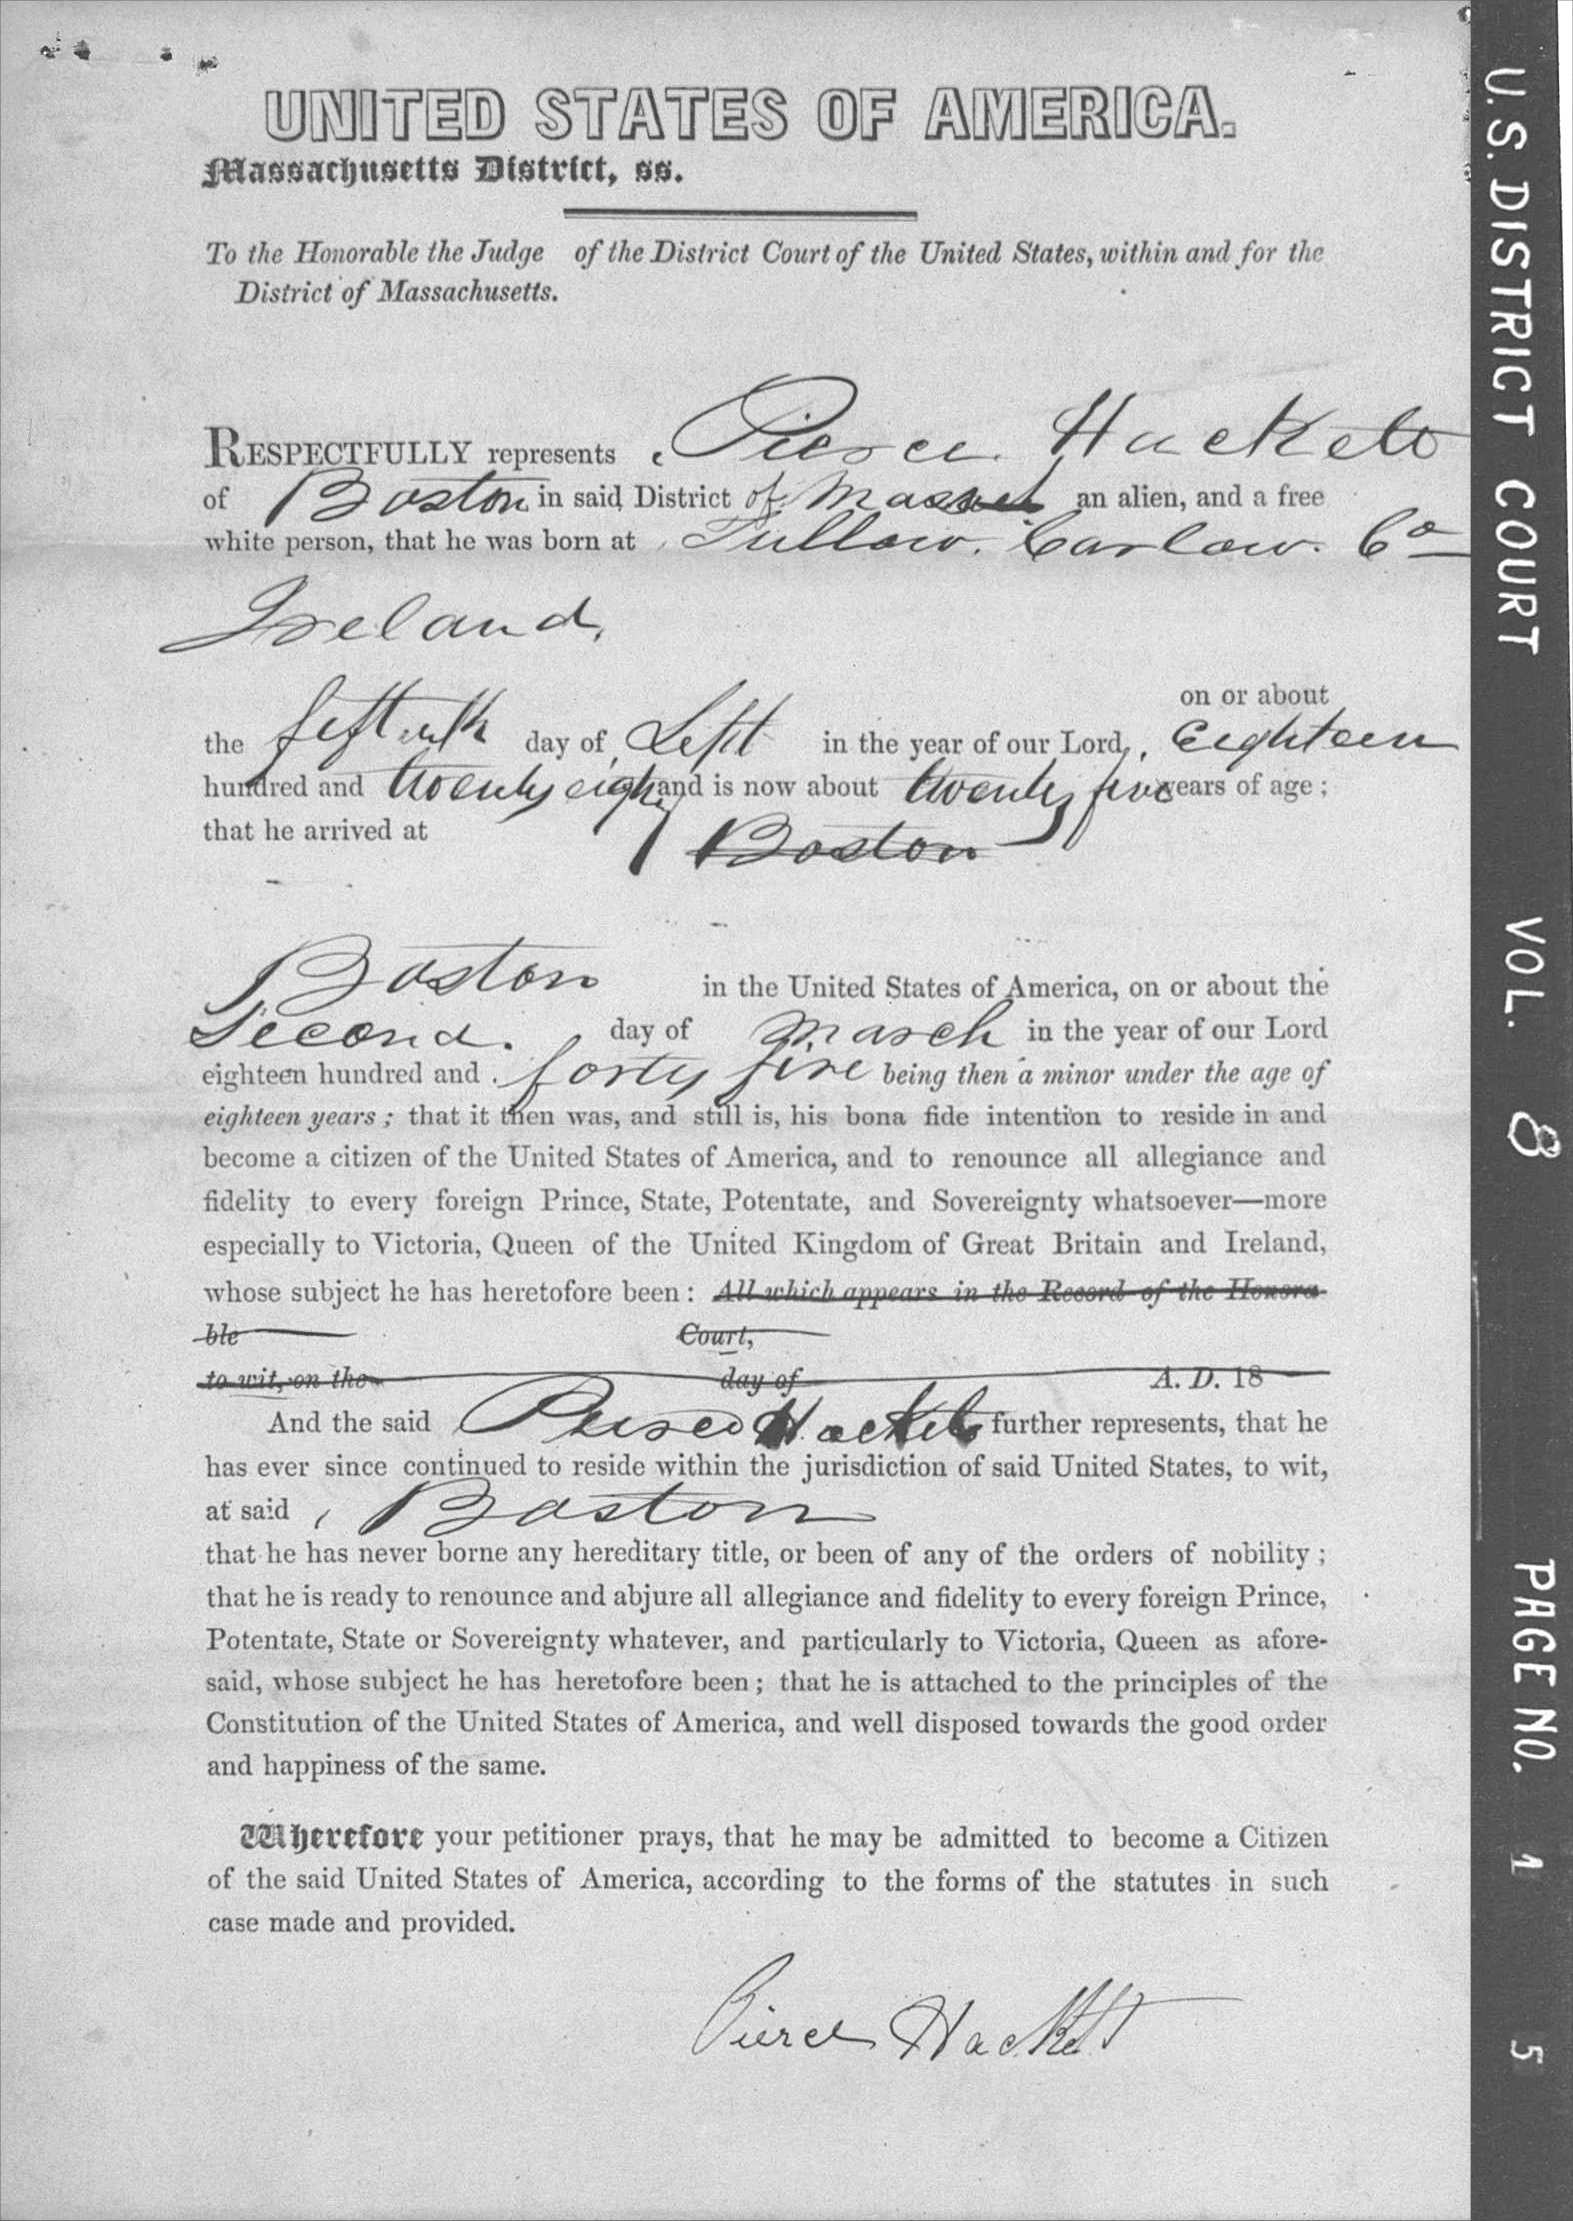 UNITED STATES OF AMERICA.
Massachusetts District, ss.
To the Honorable the Judge of the District Court of the United States, within and for the
District of Massachusetts.
RESPECTFULLY represents Pierce Hackett
of Boston in said District of Massts an alien, and a free
white person, that he was born at Tullow. Carlow. Co
Ireland,
on or about
the fifteenth day of Sept in the year of our Lord, Eighteen
hundred and twenty eight and is now about twenty five years of age;
that he arrived at Boston
Boston in the United States of America, on or about the
Second. day of March in the year of our Lord
eighteen hundred and forty five being then a minor under the age of
eighteen years; that it then was, and still is, his bona fide intention to reside in and
become a citizen of the United States of America, and to renounce all allegiance and
fidelity to every foreign Prince, State, Potentate, and Sovereignty whatsoever—more
especially to Victoria, Queen of the United Kingdom of Great Britain and Ireland,
whose subject he has heretofore been: All which appears in the Record of the Honora-
ble Court,
to wit, on the day of A. D. 18
And the said Pierce Hackett further represents, that he
has ever since continued to reside within the jurisdiction of said United States, to wit,
at said Boston
that he has never borne any hereditary title, or been of any of the orders of nobility;
that he is ready to renounce and abjure all allegiance and fidelity to every foreign Prince,
Potentate, State or Sovereignty whatever, and particularly to Victoria, Queen as afore-
said, whose subject he has heretofore been; that he is attached to the principles of the
Constitution of the United States of America, and well disposed towards the good order
and happiness of the same.
Wherefore your petitioner prays, that he may be admitted to become a Citizen
of the said United States of America, according to the forms of the statutes in such
case made and provided.
Pierce Hackett
U.S. DISTRICT COURT VOL. 8 PAGE NO. 1 5